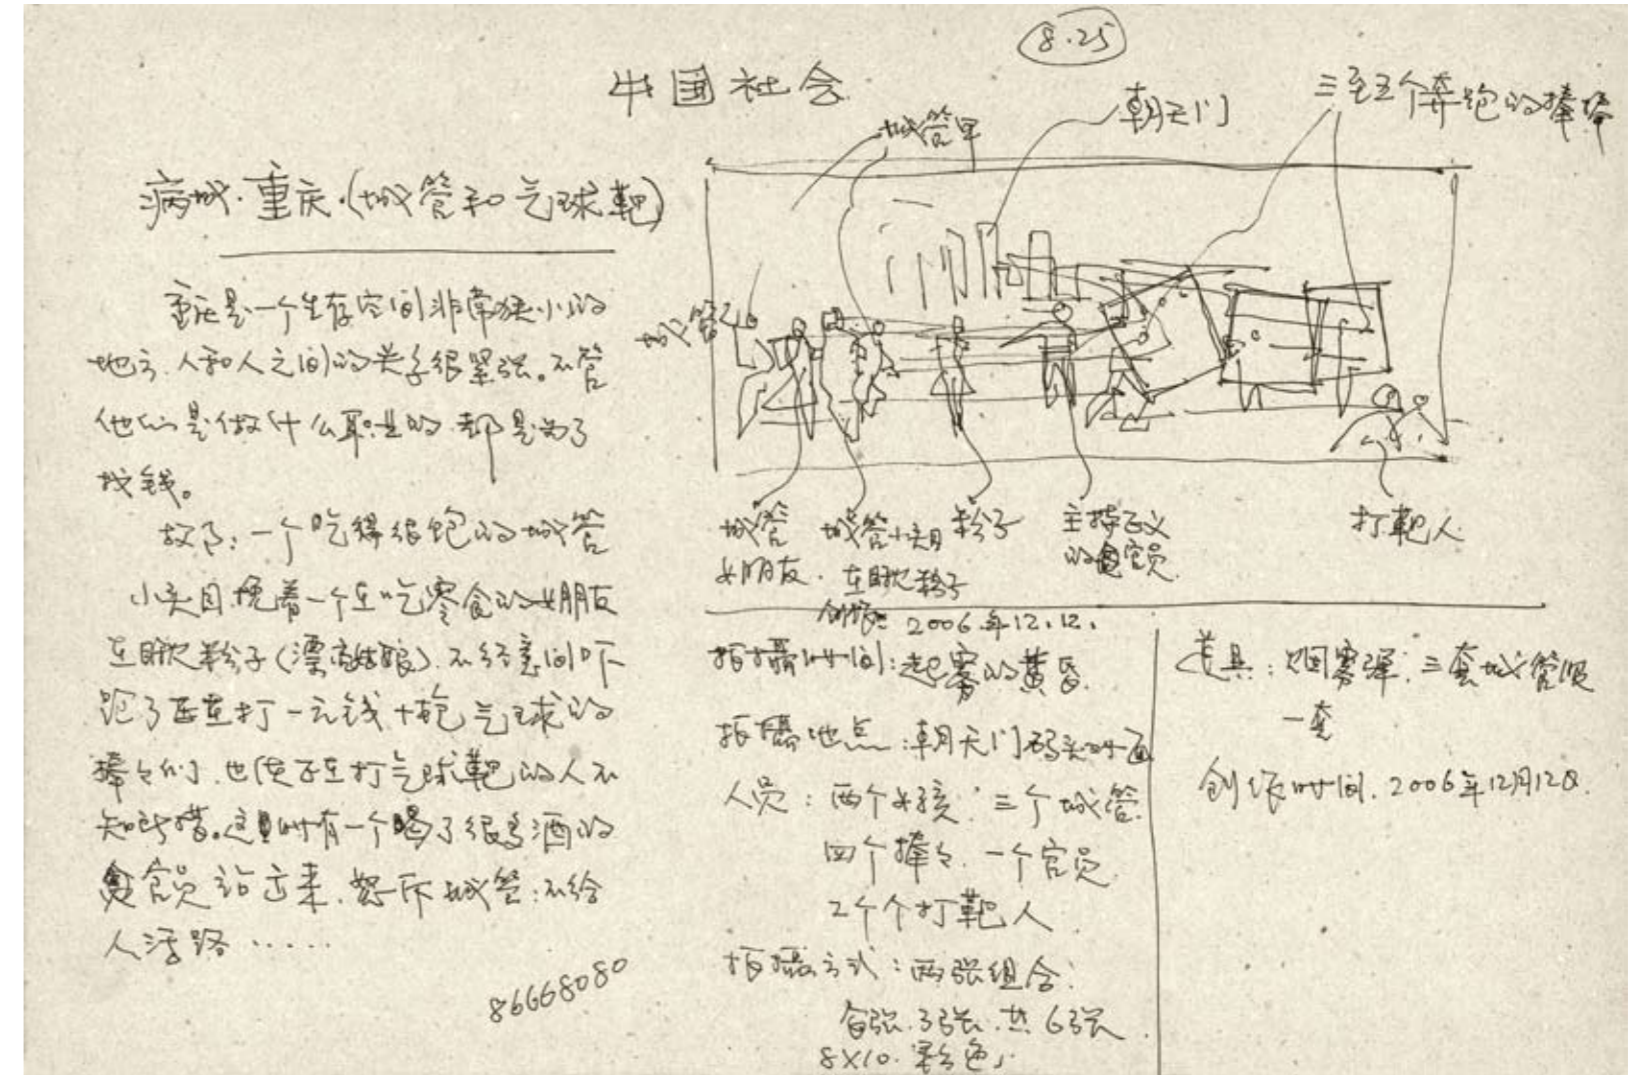 8.25
中国社会
病城·重庆·(城管和气球靶)
重庆是一个生存空间非常狭小的
地方.人和人之间的关系很紧张。不管
他们是做什么职业的.都是为了
找钱。
故事:一个吃得很饱的城管
小头目.挽着一个在吃零食的女朋友
在瞅粉子(漂亮姑娘).不经意间吓
跑了正在打一元钱十枪气球的
棒々们.也使正在打气球靶的人不
知所措。这时有一个喝了很多酒的
官员站出来.怒斥城管:不给
人活路......
86668080
城管甲
朝天门
三至五个奔跑的棒棒
城管乙
城管
女朋友.
城管小头目
在瞅粉子
粉子
主持正义
的官员
打靶人
创作: 2006年12.12.
拍摄时间:起雾的黄昏.
拍摄地点:朝天门码头对面
人员:两个女孩.三个城管.
四个棒々.一个官员
2个打靶人
拍摄方式:两张组合:
每张.3张.共6张
8X10.彩色
道具:烟雾弹.三套城管服
一套
创作时间.2006年12月12日.